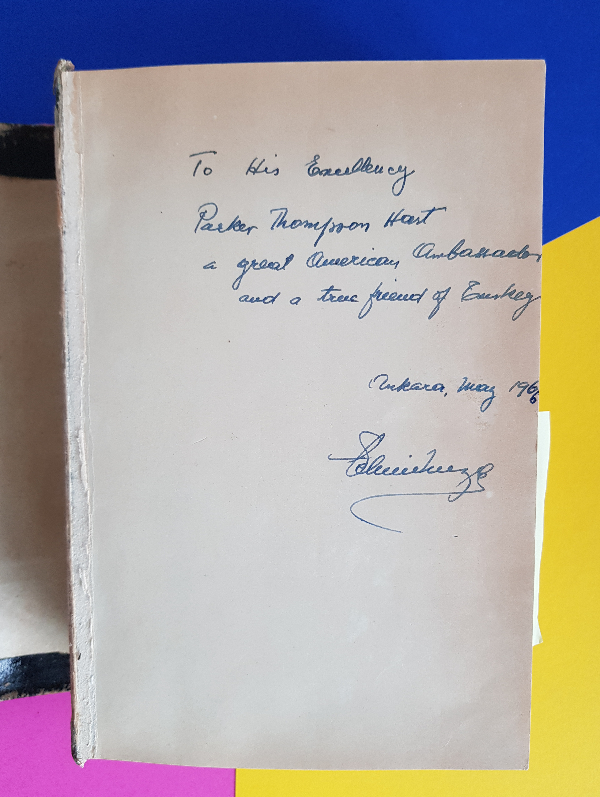 To His Excellency
Parker Thompson Hart
a great American Ambassador
and a true friend of Turkey
Ankara, May 1966